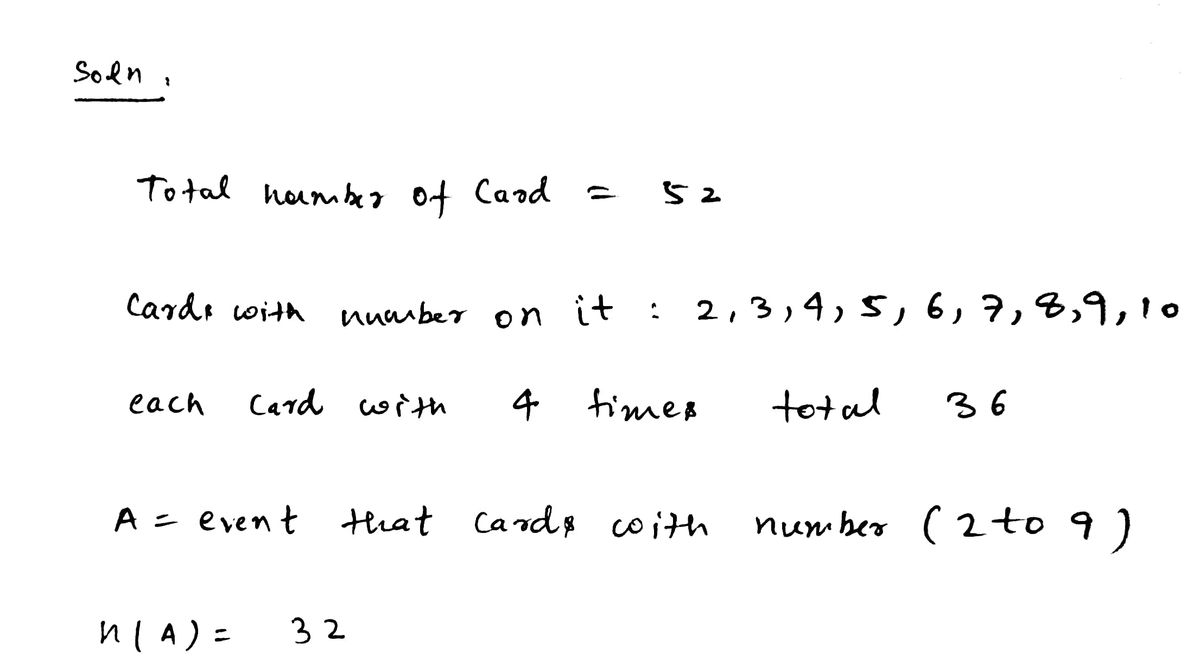 Soln :
Total number of Card = 52
Cards with number on it : 2,3,4,5,6,7,8,9,10
each Card with 4 times total 36
A = event that Cards with number (2 to 9)
n(A) = 32